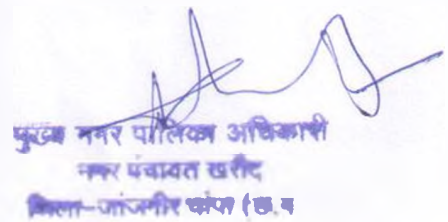 मुख्य नगर पालिका अधिकारी
नगर पंचायत खरौद
जिला-जांजगीर चांपा (छ.ग